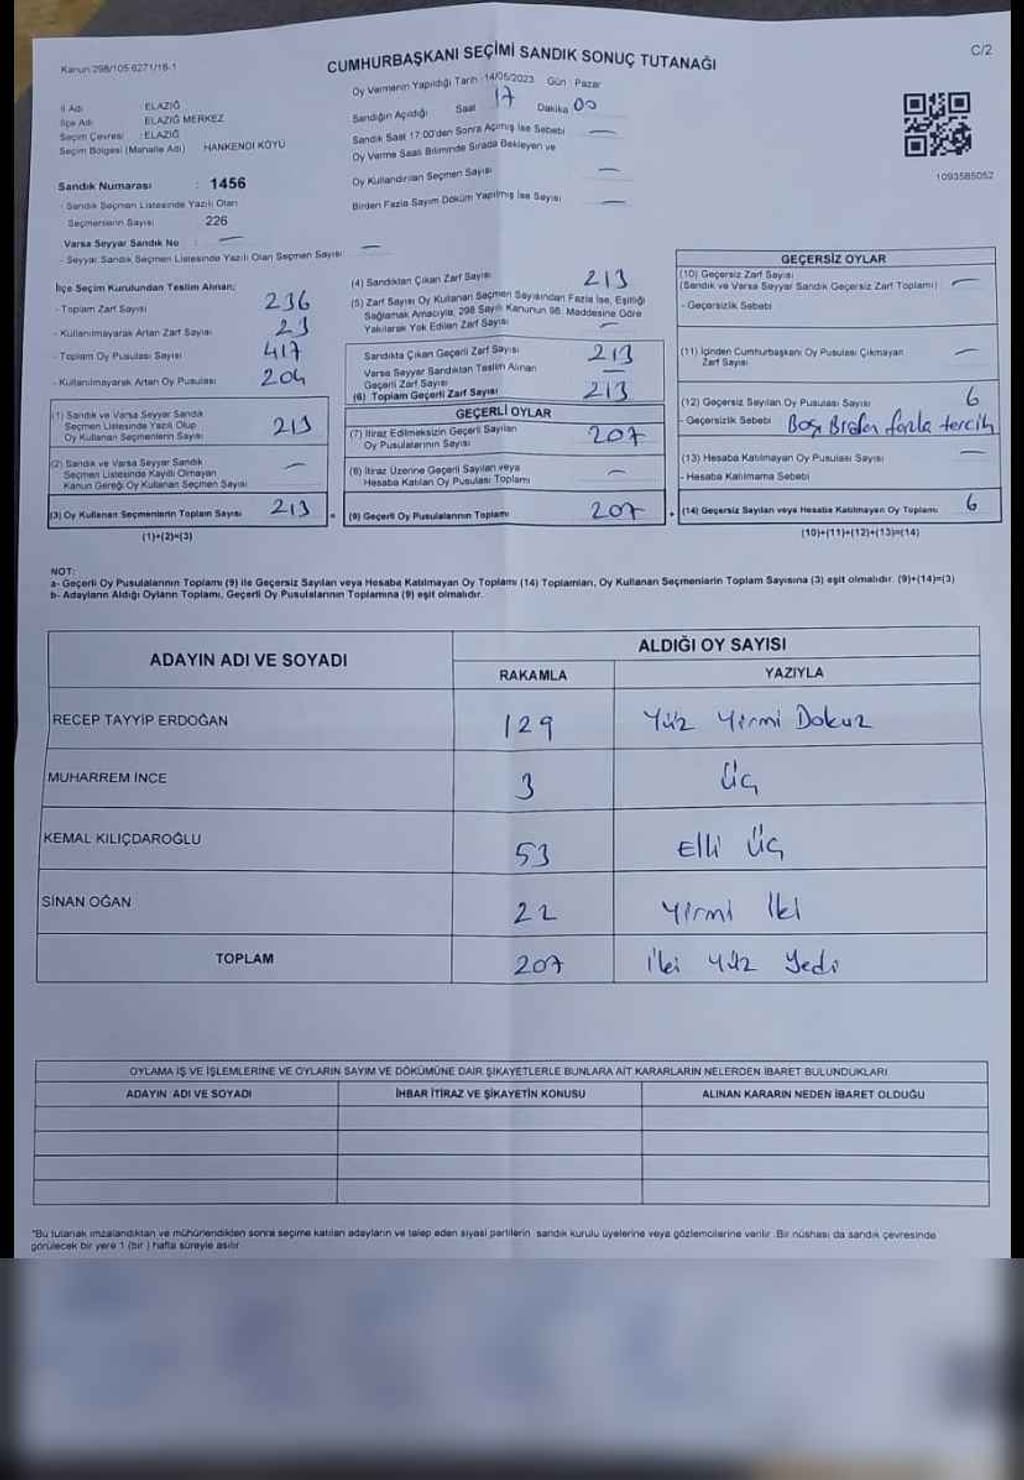 Kanun 298/105-6271/18-1
CUMHURBAŞKANI SEÇİMİ SANDIK SONUÇ TUTANAĞI
C/2
Oy Vermenin Yapıldığı Tarih : 14/05/2023 Gün : Pazar
Sandığın Açıldığı Saat 17 Dakika 00
Sandık Saat 17:00'den Sonra Açılmış İse Sebebi —
Oy Verme Saati Bitiminde Sırada Bekleyen ve
Oy Kullandırılan Seçmen Sayısı —
Birden Fazla Sayım Döküm Yapılmış İse Sayısı —
İl Adı : ELAZIĞ
İlçe Adı : ELAZIĞ MERKEZ
Seçim Çevresi : ELAZIĞ
Seçim Bölgesi (Mahalle Adı) HANKENDİ KÖYÜ
1093585052
Sandık Numarası : 1456
- Sandık Seçmen Listesinde Yazılı Olan
Seçmenlerin Sayısı 226
Varsa Seyyar Sandık No : —
- Seyyar Sandık Seçmen Listesinde Yazılı Olan Seçmen Sayısı —
İlçe Seçim Kurulundan Teslim Alınan;
- Toplam Zarf Sayısı 236
- Kullanılmayarak Artan Zarf Sayısı 23
- Toplam Oy Pusulası Sayısı 417
- Kullanılmayarak Artan Oy Pusulası 204
(1) Sandık ve Varsa Seyyar Sandık
Seçmen Listesinde Yazılı Olup
Oy Kullanan Seçmenlerin Sayısı 213
(2) Sandık ve Varsa Seyyar Sandık
Seçmen Listesinde Kayıtlı Olmayan
Kanun Gereği Oy Kullanan Seçmen Sayısı —
(3) Oy Kullanan Seçmenlerin Toplam Sayısı 213
(1)+(2)=(3)
(4) Sandıktan Çıkan Zarf Sayısı 213
(5) Zarf Sayısı Oy Kullanan Seçmen Sayısından Fazla İse, Eşitliği
Sağlamak Amacıyla, 298 Sayılı Kanunun 98. Maddesine Göre
Yakılarak Yok Edilen Zarf Sayısı —
Sandıkta Çıkan Geçerli Zarf Sayısı 213
Varsa Seyyar Sandıktan Teslim Alınan
Geçerli Zarf Sayısı —
(6) Toplam Geçerli Zarf Sayısı 213
GEÇERLİ OYLAR
(7) İtiraz Edilmeksizin Geçerli Sayılan
Oy Pusulalarının Sayısı 207
(8) İtiraz Üzerine Geçerli Sayılan veya
Hesaba Katılan Oy Pusulası Toplamı —
= (9) Geçerli Oy Pusulalarının Toplamı 207
GEÇERSİZ OYLAR
(10) Geçersiz Zarf Sayısı
(Sandık ve Varsa Seyyar Sandık Geçersiz Zarf Toplamı) —
- Geçersizlik Sebebi
(11) İçinden Cumhurbaşkanı Oy Pusulası Çıkmayan
Zarf Sayısı —
(12) Geçersiz Sayılan Oy Pusulası Sayısı 6
- Geçersizlik Sebebi Boş Birden fazla tercih
(13) Hesaba Katılmayan Oy Pusulası Sayısı —
- Hesaba Katılmama Sebebi
+ (14) Geçersiz Sayılan veya Hesaba Katılmayan Oy Toplamı 6
(10)+(11)+(12)+(13)=(14)
NOT:
a- Geçerli Oy Pusulalarının Toplamı (9) ile Geçersiz Sayılan veya Hesaba Katılmayan Oy Toplamı (14) Toplamları, Oy Kullanan Seçmenlerin Toplam Sayısına (3) eşit olmalıdır. (9)+(14)=(3)
b- Adayların Aldığı Oyların Toplamı, Geçerli Oy Pusulalarının Toplamına (9) eşit olmalıdır.
ADAYIN ADI VE SOYADI
ALDIĞI OY SAYISI
RAKAMLA YAZIYLA
RECEP TAYYİP ERDOĞAN 129 Yüz Yirmi Dokuz
MUHARREM İNCE 3 Üç
KEMAL KILIÇDAROĞLU 53 Elli Üç
SİNAN OĞAN 22 Yirmi İki
TOPLAM 207 İki Yüz Yedi
OYLAMA İŞ VE İŞLEMLERİNE VE OYLARIN SAYIM VE DÖKÜMÜNE DAİR ŞİKAYETLERLE BUNLARA AİT KARARLARIN NELERDEN İBARET BULUNDUKLARI
ADAYIN ADI VE SOYADI İHBAR İTİRAZ VE ŞİKAYETİN KONUSU ALINAN KARARIN NEDEN İBARET OLDUĞU
*Bu tutanak imzalandıktan ve mühürlendikten sonra seçime katılan adayların ve talep eden siyasi partilerin sandık kurulu üyelerine veya gözlemcilerine verilir. Bir nüshası da sandık çevresinde
görülecek bir yere 1 (bir) hafta süreyle asılır.